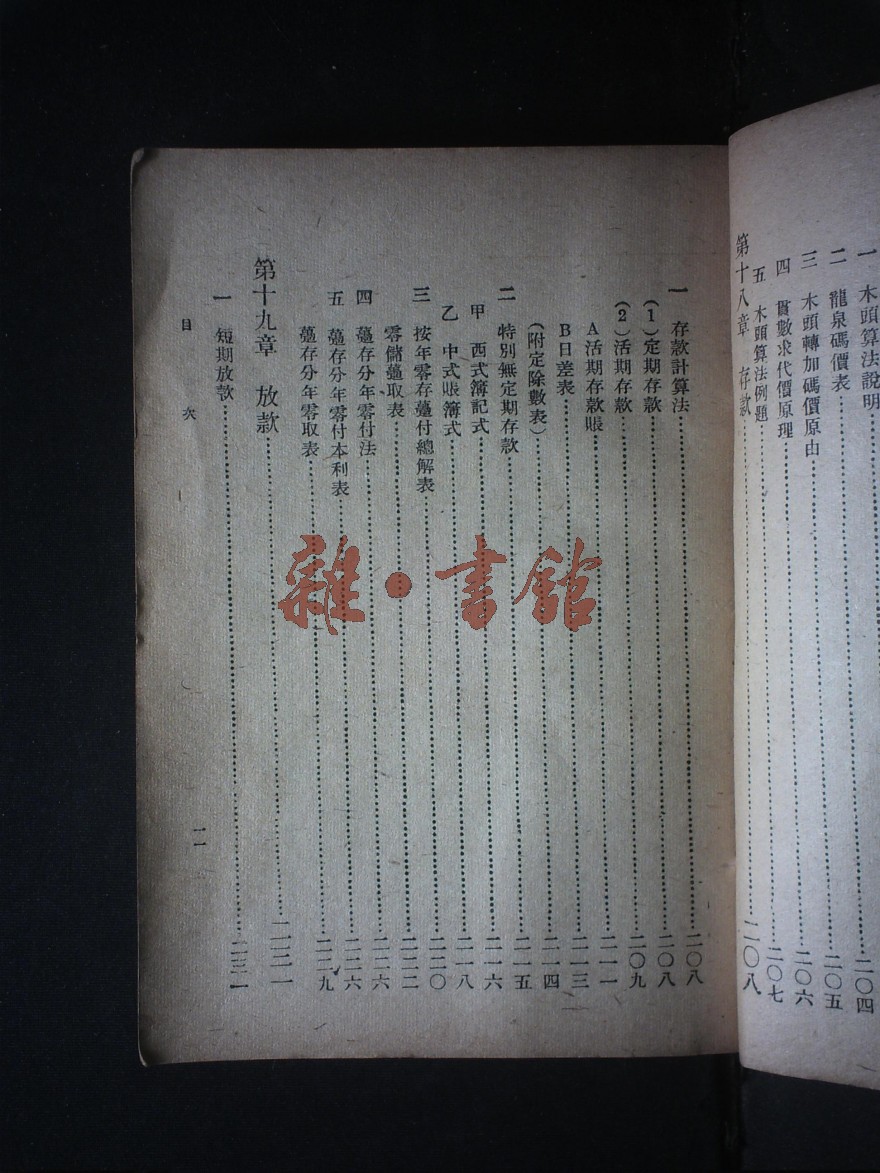 一 木頭算法說明…二〇四
二 龍泉碼價表…二〇五
三 木頭轉加碼價原由…二〇六
四 貫數求代價原理…二〇七
五 木頭算法例題
第十八章 存款…二〇八
一 存款計算法…二〇八
(1)定期存款…二〇八
(2)活期存款…二〇九
A活期存款賬…二一一
B日差表…二一三
(附定除數表)…二一四
二 特別無定期存款…二一五
甲 西式簿記式…二一六
乙 中式賬簿式…二一八
三 按年零存躉付總解表…二二〇
零儲躉取表…二二二
四 躉存分年零付法…二二六
五 躉存分年零付本利表…二二六
躉存分年零取表…二二九
第十九章 放款…二三一
一 短期放款…二三一
目次
一一
雜·書館